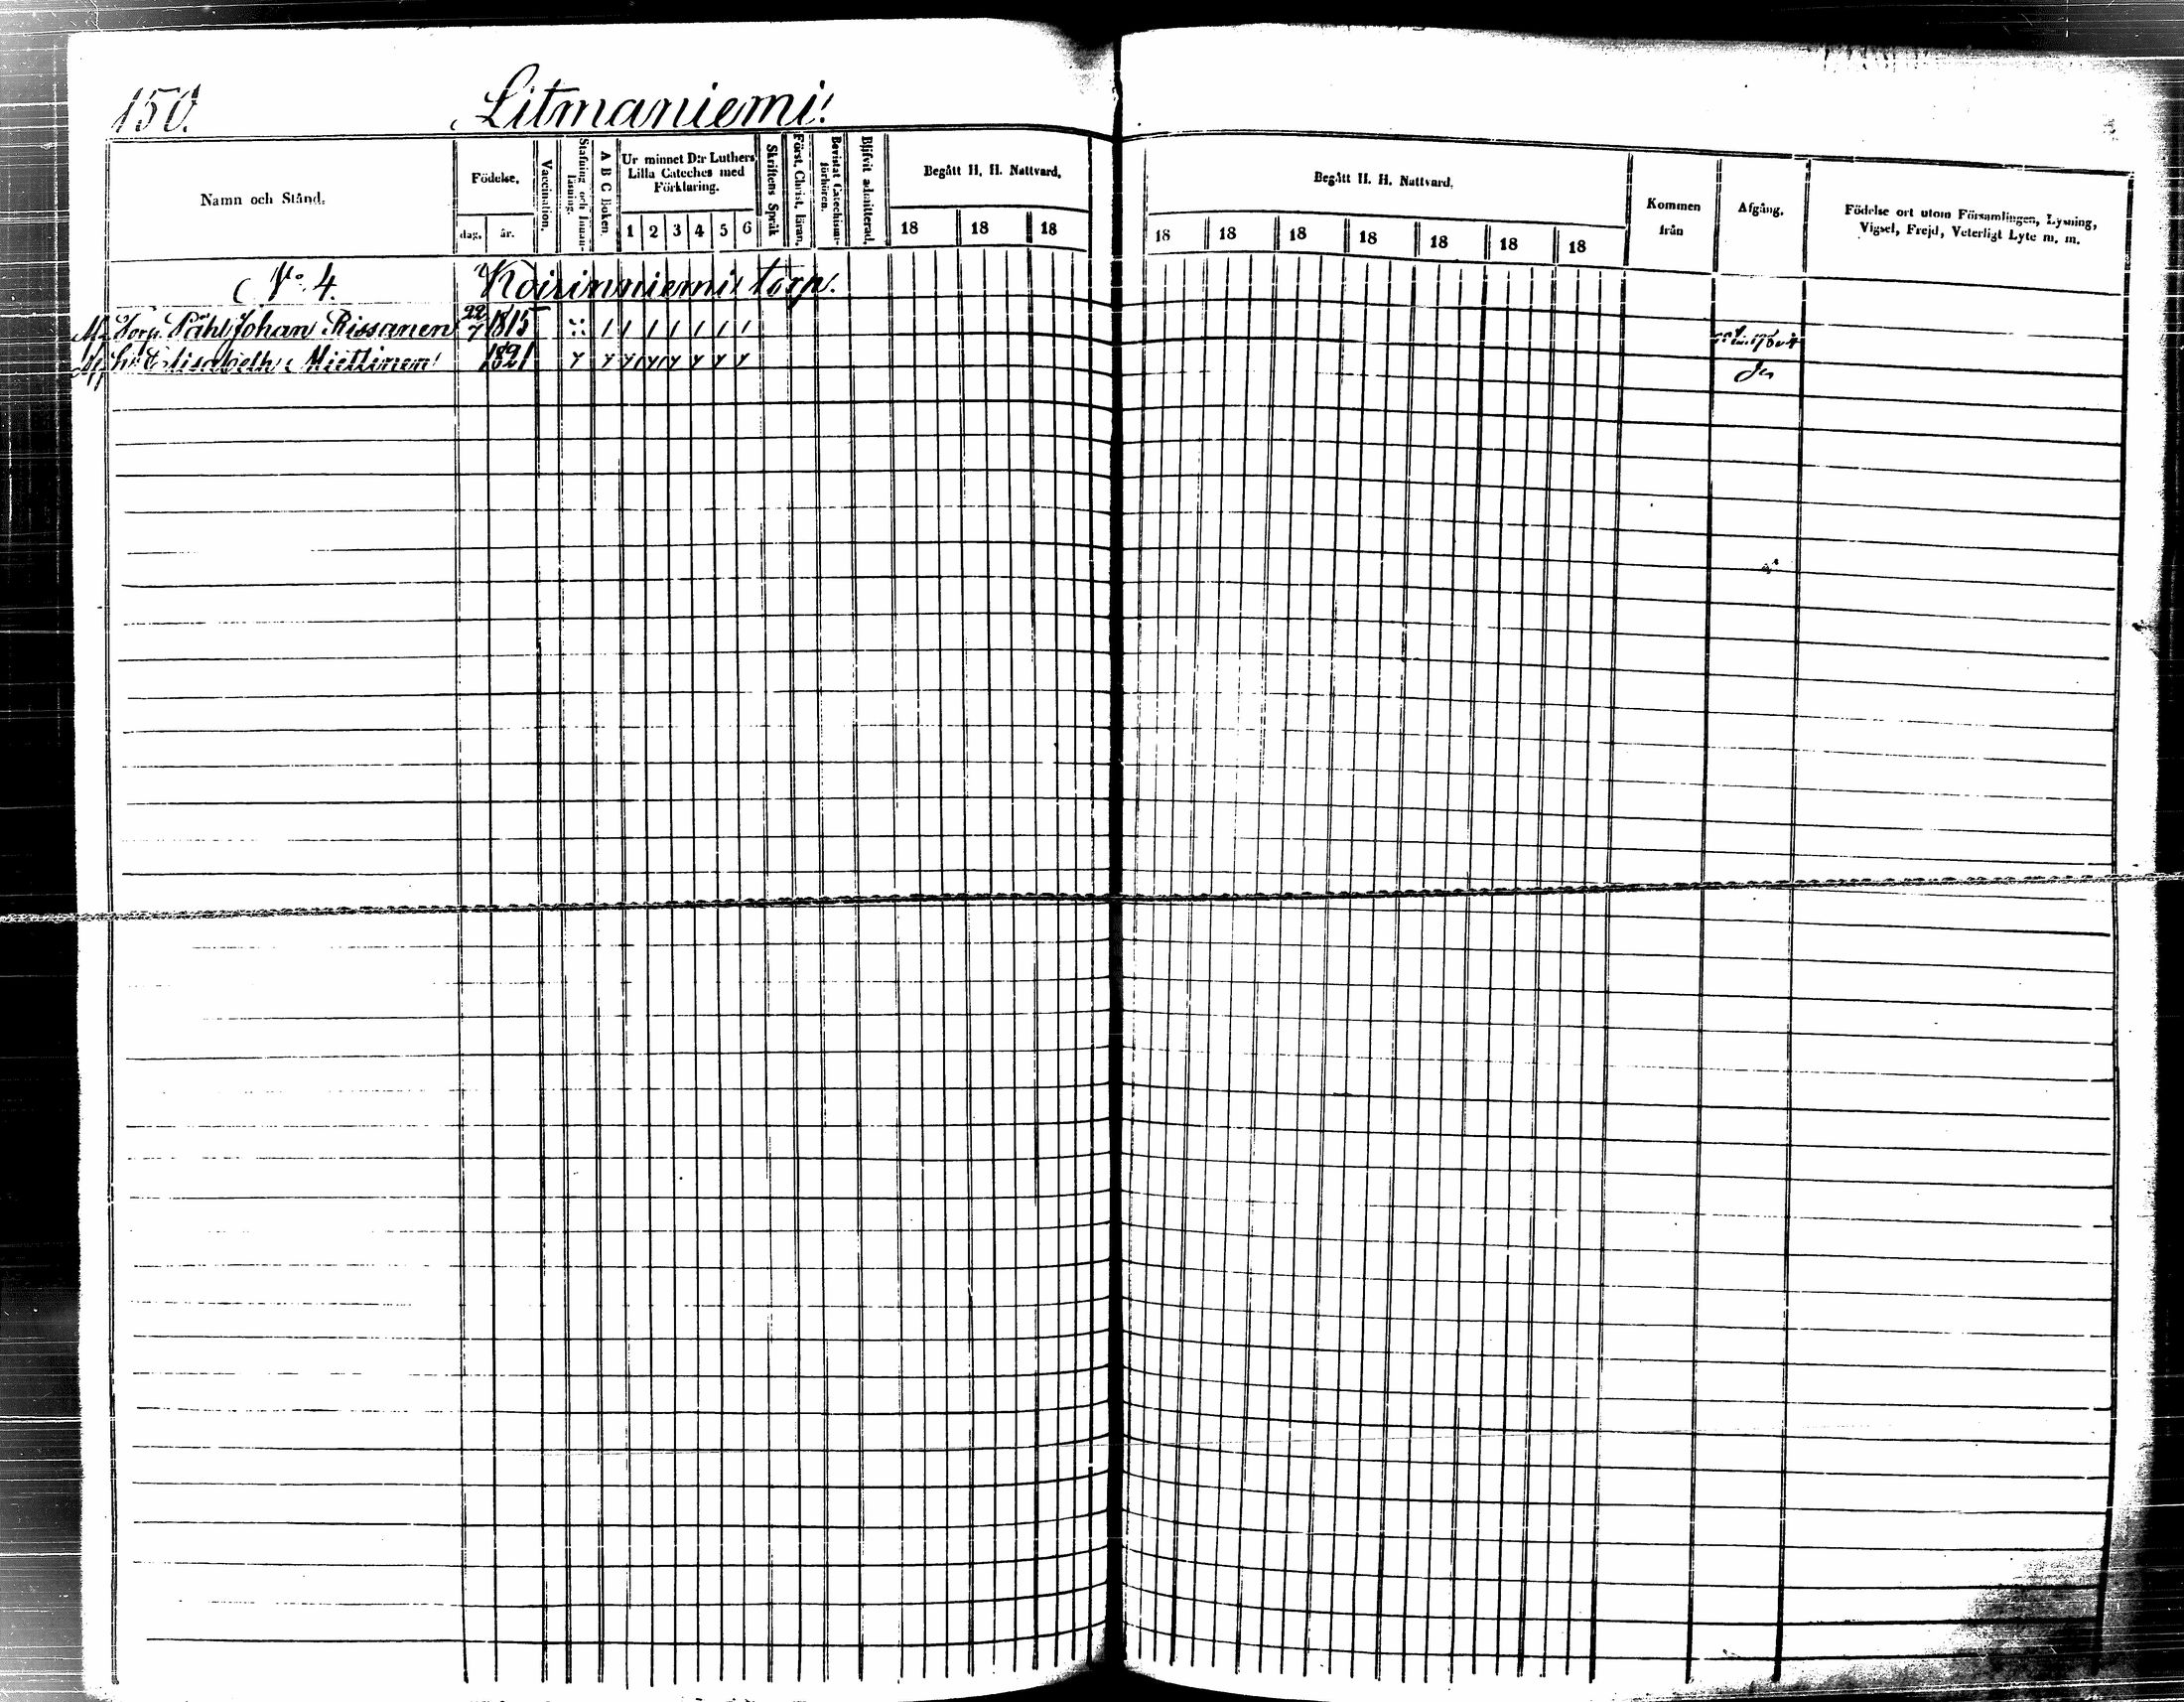 150. Litmaniemi
Namn och Stånd.
Födelse.
dag. år.
Vaccination.
Stafning och Innan-läsning.
A B C Boken.
Ur minnet D:r Luthers Lilla Cateches med Förklaring.
1 2 3 4 5 6
Skriftens Språk
Först. Christ. läran.
Bevistat Catechismi-förhören.
Blifvit admitterad.
Begått H. H. Nattvard.
18 18 18
Begått H. H. Nattvard.
18 18 18 18 18 18 18
Kommen från
Afgång.
Födelse ort utom Församlingen, Lysning, Vigsel, Frejd, Veterligt Lyte m. m.
No. 4. Koirinniemi torp.
Torp. Påhl Johan Rissanen 22/7 1815
h. Elisabeth Miettinen 1821